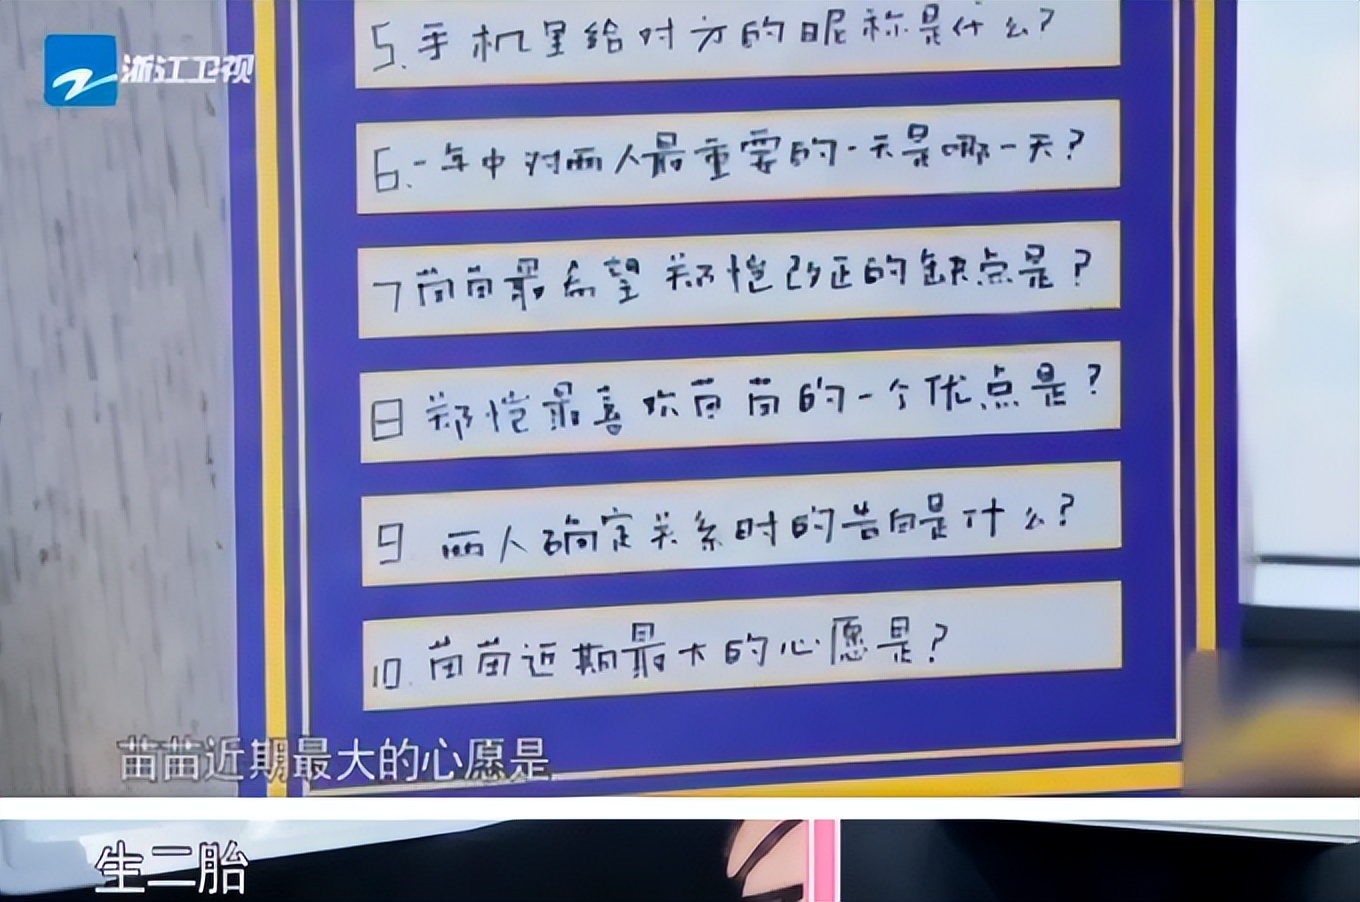 浙江卫视
5.手机里给对方的昵称是什么?
6.一年中对两人最重要的一天是哪一天?
7 苗苗最希望郑恺改正的缺点是?
8 郑恺最喜欢苗苗的一个优点是?
9 两人确定关系时的告白是什么?
10.苗苗近期最大的心愿是?
苗苗近期最大的心愿是
生二胎